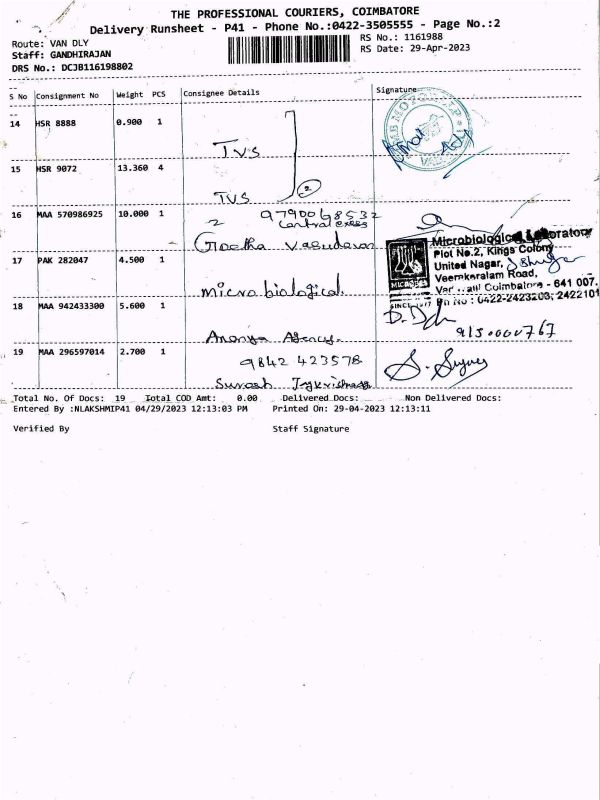 THE PROFESSIONAL COURIERS, COIMBATORE
Delivery Runsheet - P41 - Phone No.:0422-3505555 - Page No.:2
Route: VAN DLY
RS No.: 1161988
Staff: GANDHIRAJAN
RS Date: 29-Apr-2023
DRS No.: DCJB116198802
S No Consignment No Weight PCS Consignee Details Signature
14 HSR 8888 0.900 1
TVS
15 HSR 9072 13.360 4
TVS 2
16 MAA 570986925 10.000 1
9790068532
2
Geetha Vasudevan
17 PAK 282047 4.500 1
Microbiological
Microbiological Laboratory
Plot No.2, Kings Colony
United Nagar,
Veerakeralam Road,
Coimbatore - 641 007.
Ph No : 0422-2423203, 2422101
SINCE 1977
18 MAA 942433300 5.600 1
Ananya Agency
9150000767
19 MAA 296597014 2.700 1
9842 423578
Suresh Jaykrishnan
Total No. Of Docs: 19 Total COD Amt: 0.00 Delivered Docs: Non Delivered Docs:
Entered By :NLAKSHMIP41 04/29/2023 12:13:03 PM Printed On: 29-04-2023 12:13:11
Verified By Staff Signature